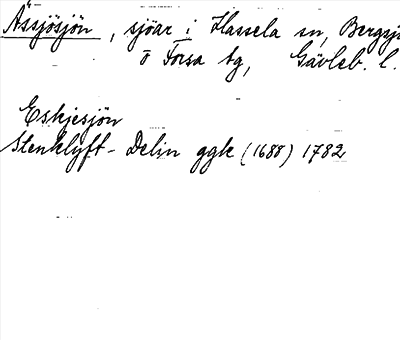 Ässjösjön, sjöar i Hassela sn, Bergsjö
o Forsa tg, Gävleb. l.
Eskjesjön
Stenklyft - Delin ggk (1688) 1782